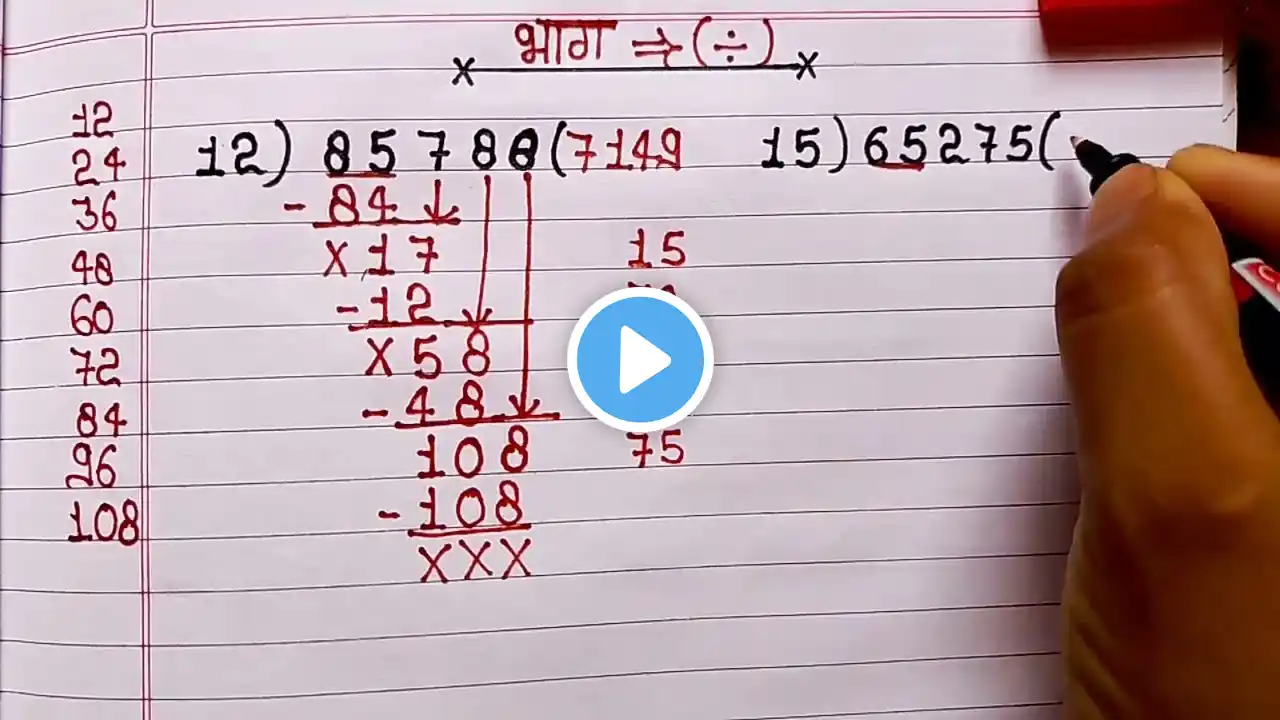 भाग ⇒ (÷)
12
24
36
48
60
72
84
96
108
12) 85788 (7149
- 84
x 17
- 12
x 58
- 48
108
- 108
x x x
15) 65275 (
15
75